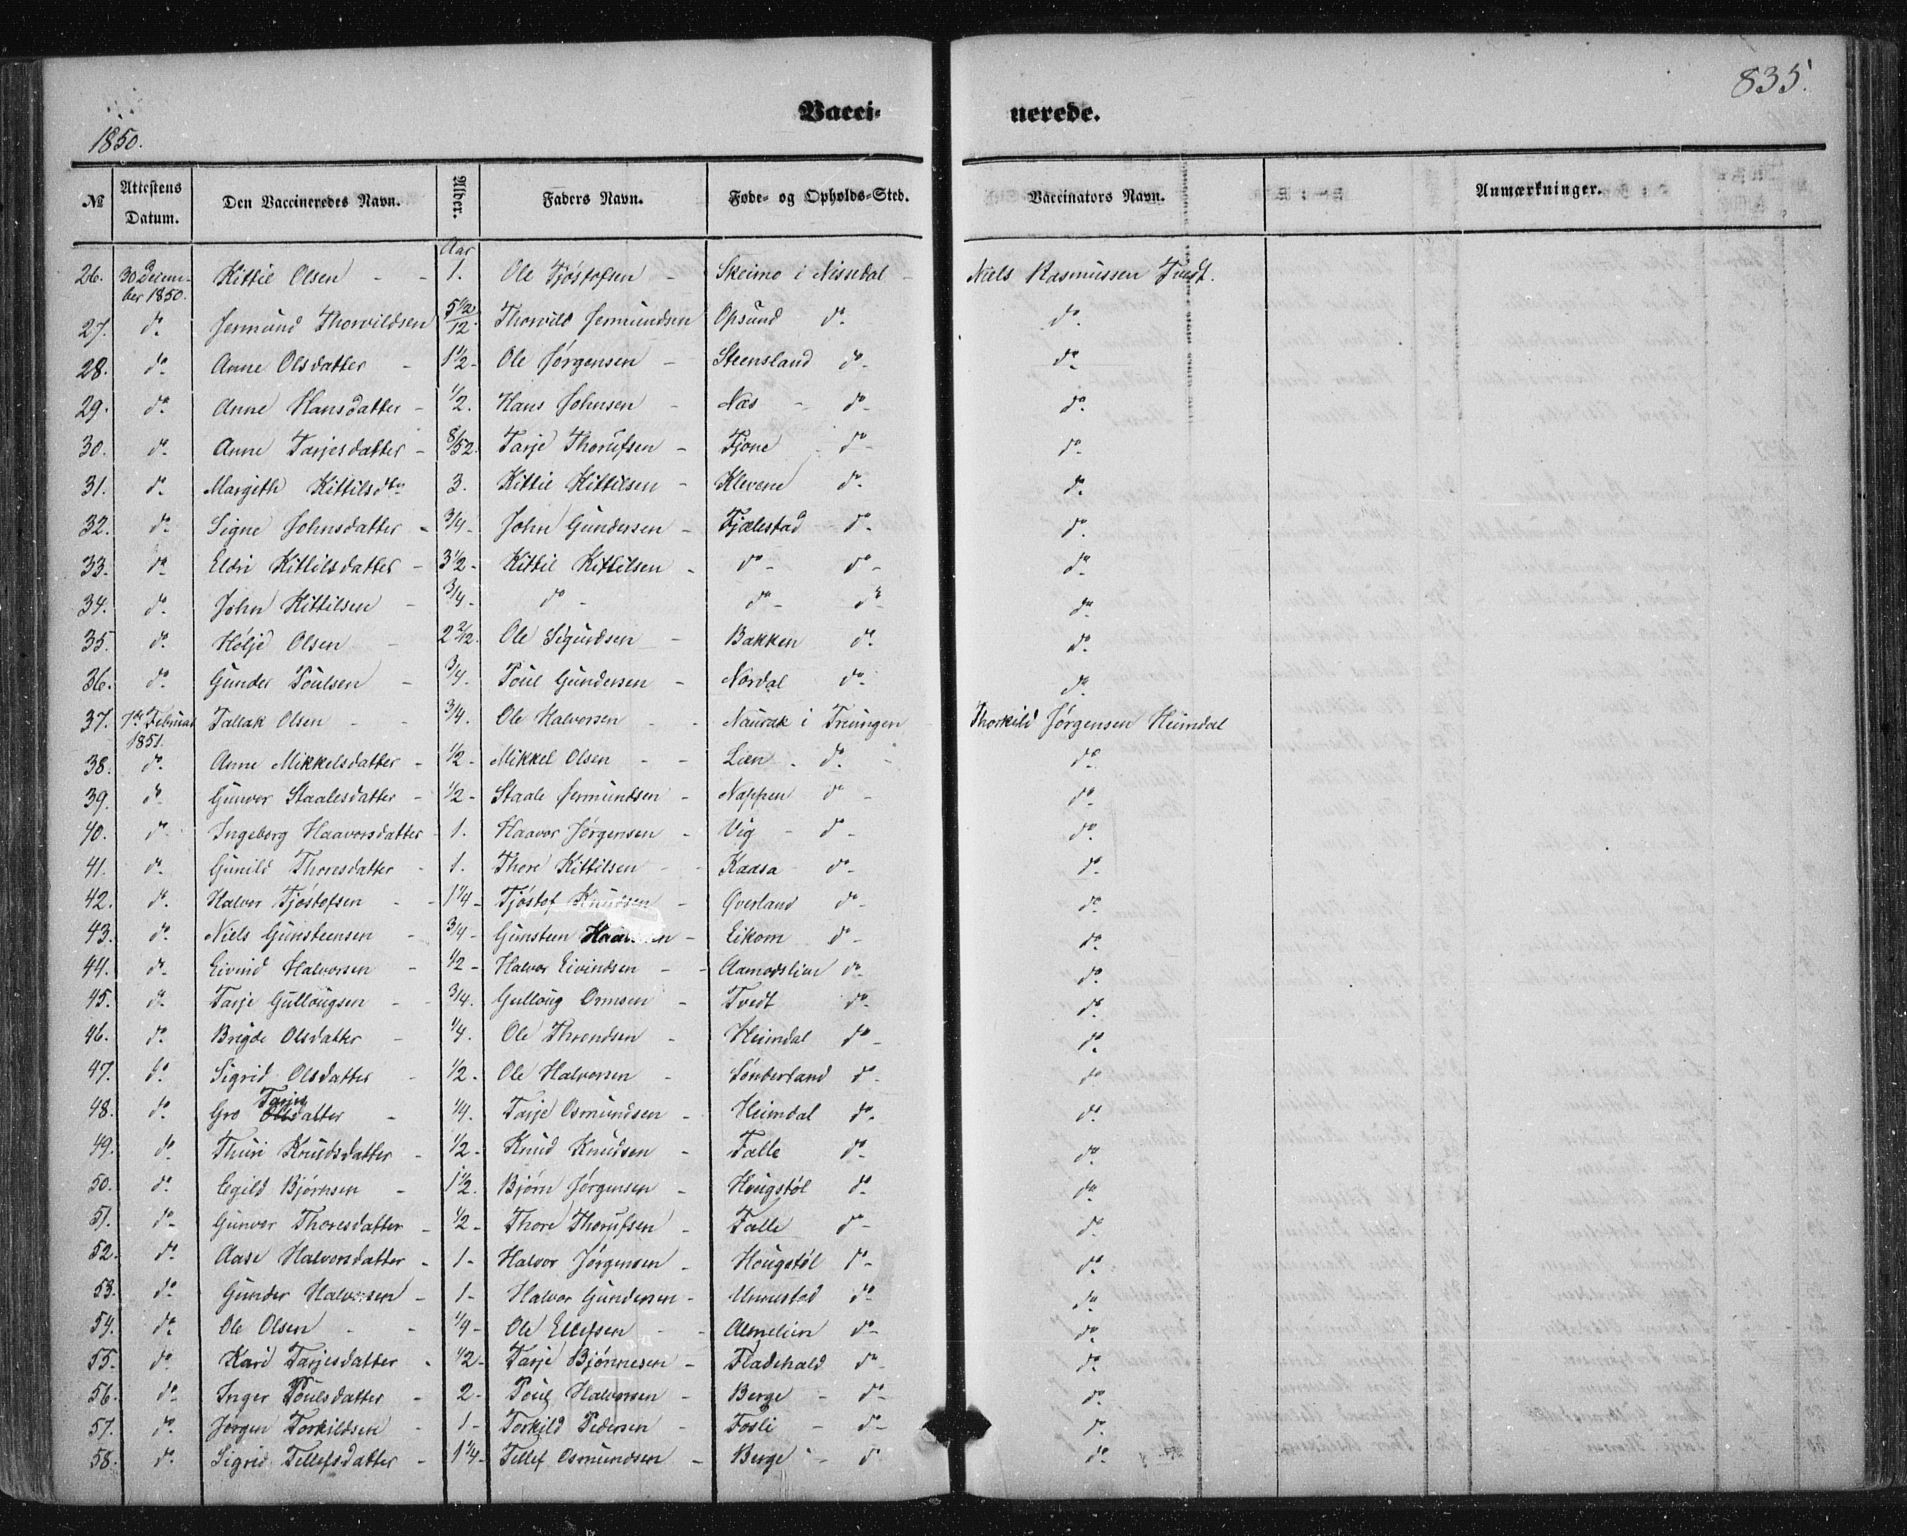 835.
Vacci- nerede.
1850.
№ Attestens Datum. Den Vaccineredes Navn. Alder. Faders Navn. Føde- og Opholds-Sted. Vaccinators Navn. Anmærkninger.
Aar
26. 30 Decem- ber 1850. Kittil Olsen - - 1. Ole Tjøstofsen - Skeimo i Nissedal - Niels Rasmussen Tvedt.
27. do. Jermund Thorvildsen 5 1/2/12. Thorvild Jermundsen Opsund do. do.
28. do. Anne Olsdatter - 1 1/2. Ole Jørgensen - Steensland do. do.
29. do. Anne Hansdatter - 1/2. Hans Johnsen - Næs - do. do.
30. do. Anne Tarjesdatter - 8/52. Tarje Thorufsen - Fjone - do- do.
31. do. Margith Kittilsdtr 3. Kittil Kittilsen - Klevene do. do.
32. do. Signe Johnsdatter - 3/4. John Gundersen - Fjælestad - do. do.
33. do. Eldri Kittilsdatter - 3 1/2. Kittil Kittilsen - do - do- do.
34. do. John Kittilsen - 3/4. do - do- do- do.
35. do. Høljé Olsen - 2 2/12. Ole Sigurdsen - Bakken do. do.
36. do. Gunder Poulsen - 3/4. Poul Gundersen - Nordal do. do.
37. 7de Februar 1851. Tallak Olsen - - 3/4. Ole Halvorsen - - Naurak i Treungen Thorkild Jørgensen Heimdal
38. do. Anne Mikkelsdatter - 1/2 - Mikkel Olsen - - Lien - do. do.
39. do. Gunvor Staalesdatter - 1/2 - Staale Jermundsen - Nappen do - do.
40. do. Ingeborg Haavorsdatter - 1. Haavor Jørgensen - Vig - do - do.
41. do. Gunild Thoresdatter - 1. Thore Kittilsen - Kaasa - do- do.
42. do. Halvor Tjøstofsen - - 1 1/4 - Tjøstof Knudsen - Øverland do- do.
43. do. Niels Gunsteensen - 3/4 - Gunsteen - Eikom do- do.
44. do. Eivind Halvorsen - 1/2 - Halvor Eivindsen - - Aamodslien do- do.
45. do. Tarje Gullougsen - - 3/4. Gulloug Ormsen - Tvedt do- do.
46. do. Brigde Olsdatter - 1/4. Ole Throndsen - Heimdal do- do.
47. do. Sigrid Olsdatter - 1/2. Ole Halvorsen - Sønderland do- do.
48. do. Gro Tarjesdatter - 1/4. Tarje Osmundsen - Heimdal do- do.
49. do. Thuri Knudsdatter - 1/2 - Knud Knudsen - Fælle do. do.
50. do. Egild Bjørnsen - 1 1/2. Bjørn Jørgensen - Hougstøl do. do.
51. do. Gunvor Thoresdatter - 1/2 - Thore Thorufsen - Fælle do- do.
52. do. Aase Halvorsdatter - 1 - Halvor Jørgensen - Hougstøl do- do.
53. do. Gunder Halvorsen - 1 - Halvor Gundersen - do- do.
54. do. Ole Olsen - - 1/4 - Ole Ellefsen - - Almelien do- do.
55. do. Kari Tarjesdatter - 1/2 - Tarje Bjønnesen - Fladehald do- do.
56. do. Inger Poulsdatter - 2 - Poul Halvorsen - Berge - do- do.
57. do. Jørgen Torkildsen - 1 - Torkild Pedersen - Fosli - do- do.
58. do. Sigrid Tellefsdatter - 1 1/4 - Tellef Osmundsen - Berge - do- do.